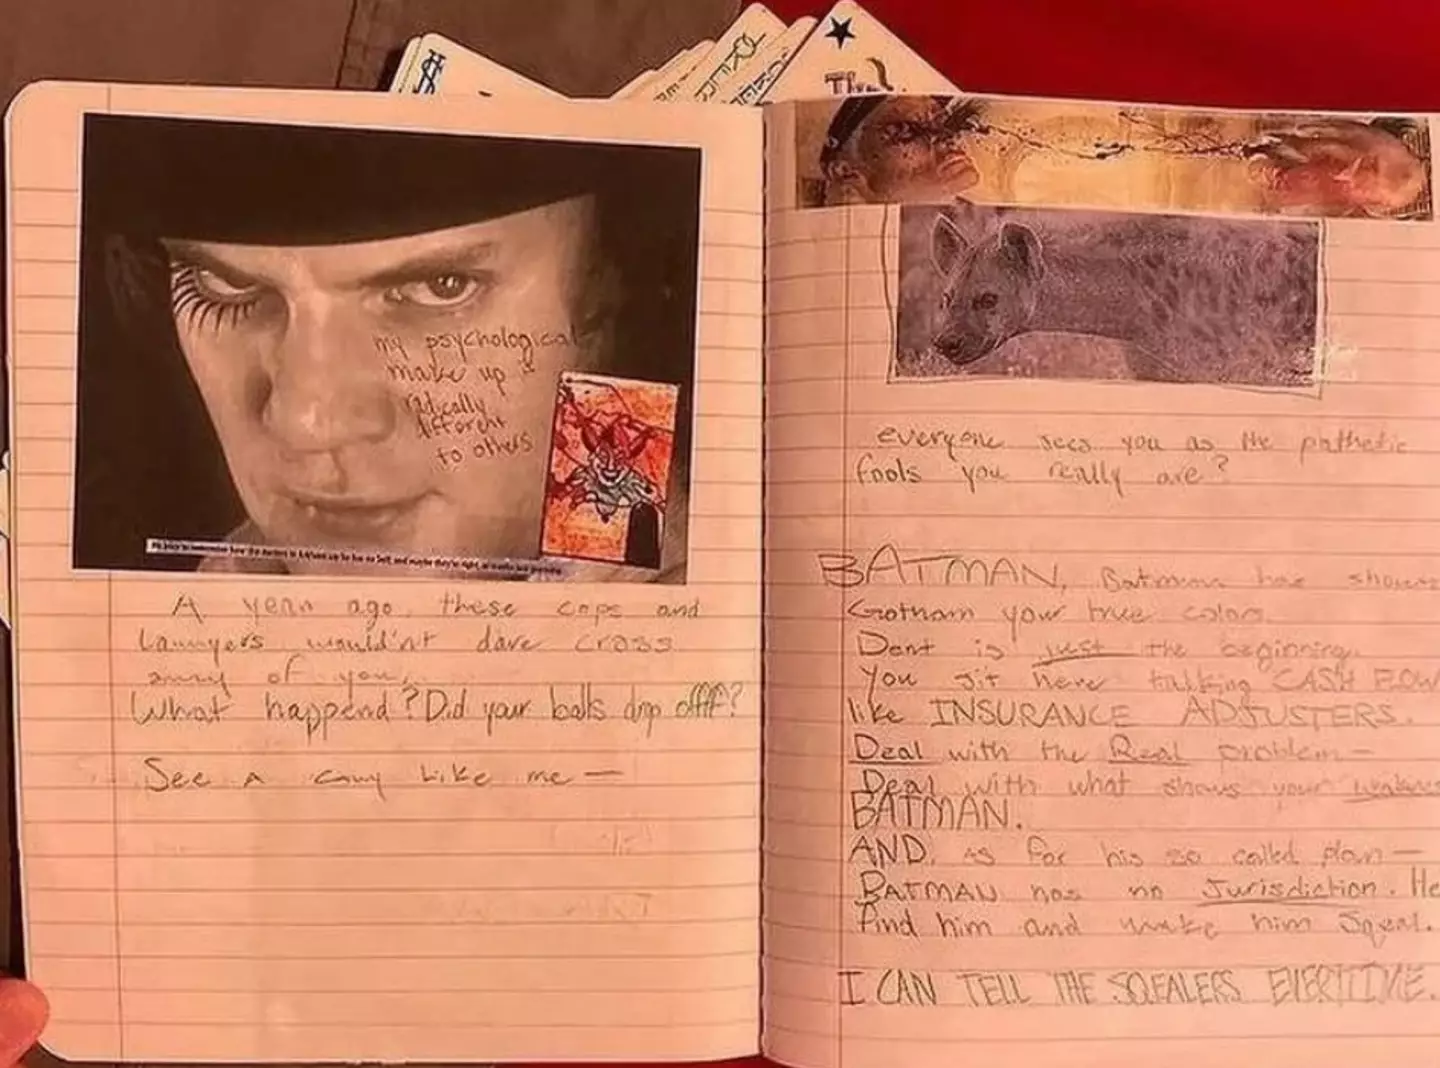 my psychological
make up is
radically
different
to others
A year ago, these cops and
Lawyers would'nt dare cross
any of you,
What happend? Did your balls drop offff?
See a guy like me —
everyone sees you as the pathetic
fools you really are?
BATMAN, Batman has shown
Gotham your true colors
Dent is just the beginning.
You sit here talking CASH FLOW
like INSURANCE ADJUSTERS.
Deal with the Real problem —
Deal with what shows your weakness
BATMAN.
AND, as for his so called plan —
BATMAN has no Jurisdiction. He
find him and make him Sqeal.
I CAN TELL THE SQEALERS EVERTIME.